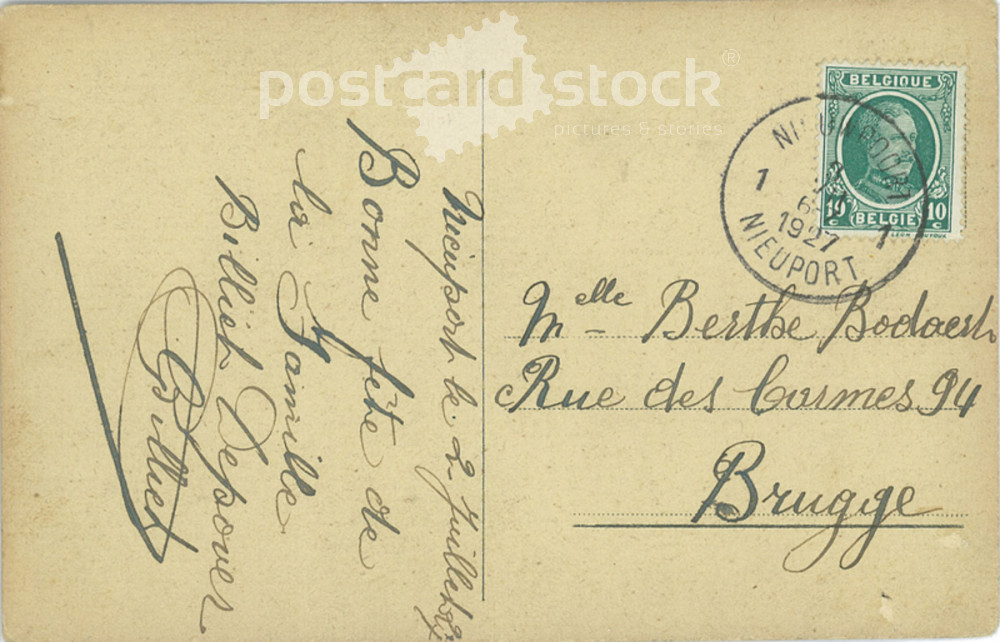 postcard stock®
pictures & stories
Nieuport le 2 Juillet 27
Bonne fête de
la Famille
Billiet Depover
GBilliet
BELGIQUE
10 BELGIE 10
C C
NIEUWPOORT
1 1
2
1927
NIEUPORT
Melle Berthe Bodaert
Rue des Carmes 94
Brugge